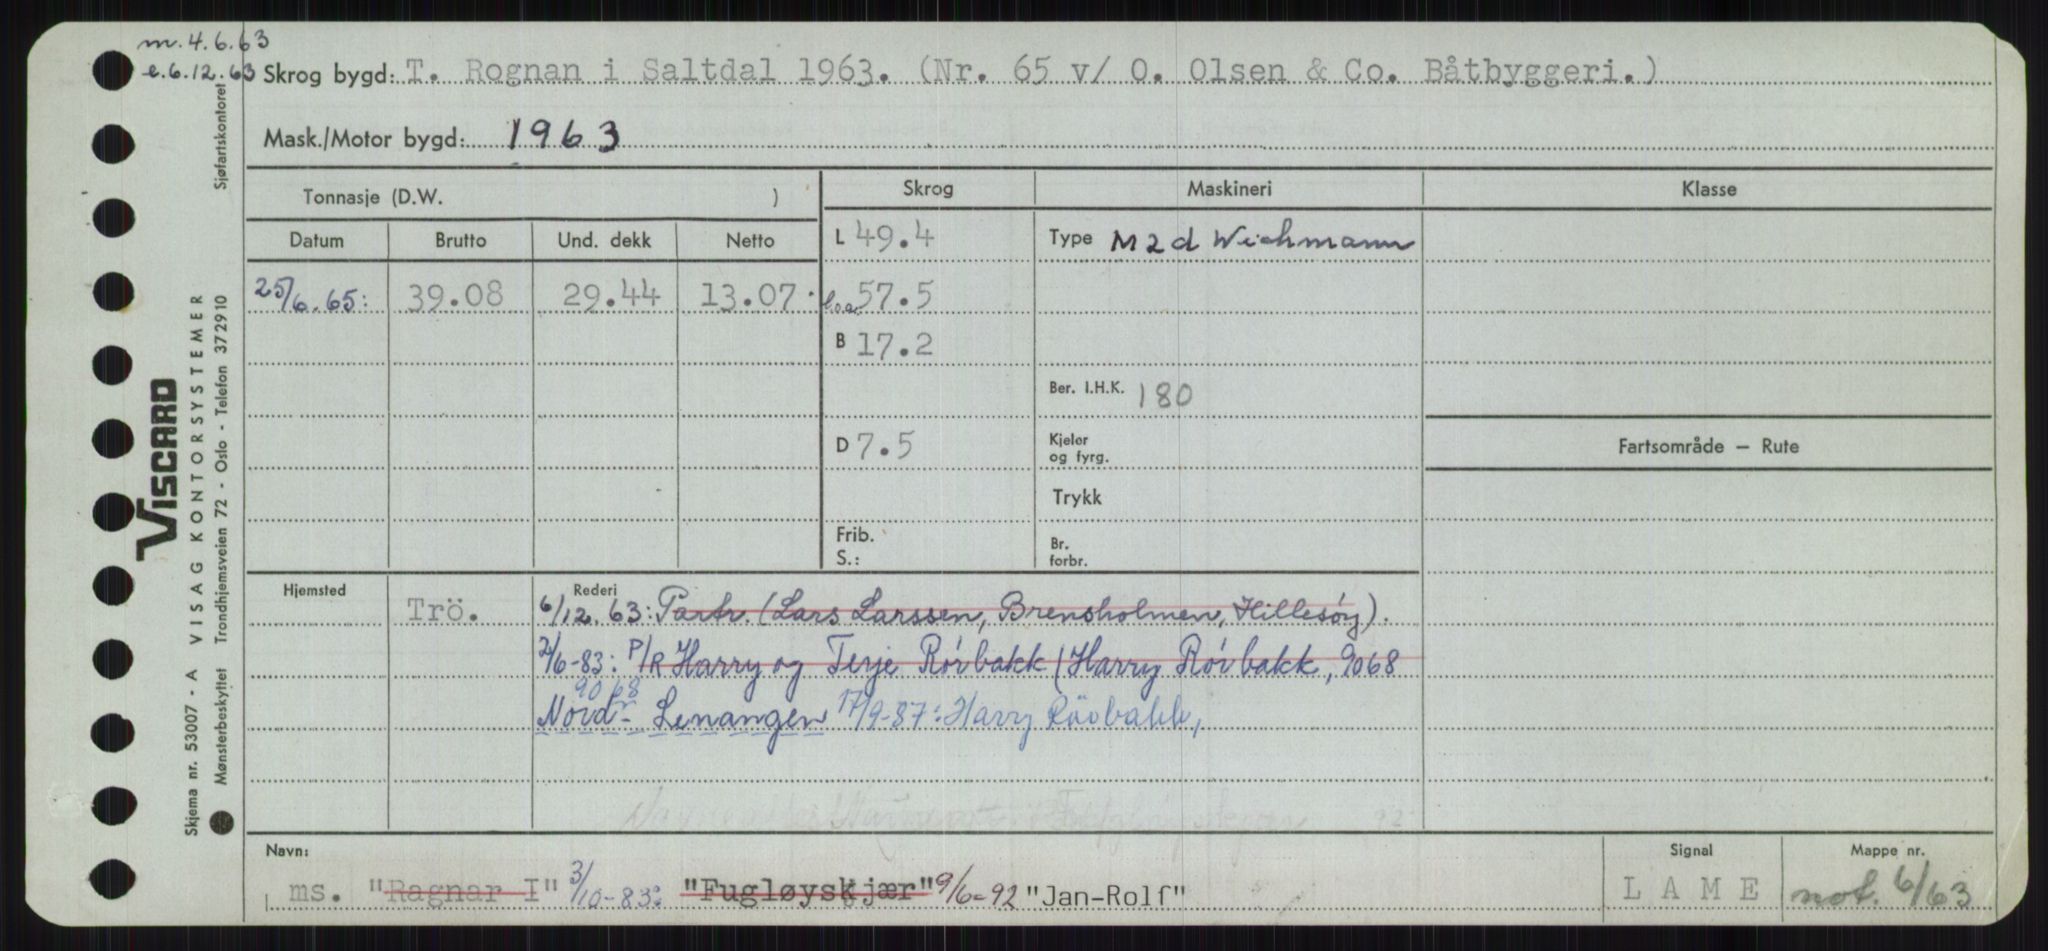 m. 4.6.63
e. 6.12.63 Skrog bygd: T. Rognan i Saltdal 1963. (Nr. 65 v/ O. Olsen & Co. Båtbyggeri.)
Mask./Motor bygd: 1963
Tonnasje (D.W. ) Skrog Maskineri Klasse
Datum Brutto Und. dekk Netto L 49.4 Type M2d Wichmann
25/6.65: 39.08 29.44 13.07 l.o.a. 57.5
B 17.2
Ber. I.H.K. 180
D 7.5 Kjeler og fyrg. Fartsområde — Rute
Trykk
Frib. S.: Br. forbr.
Hjemsted Rederi
Trö. 6/12.63: Partr. (Lars Larssen, Brensholmen, Hillesöy).
2/6-83: P/R Harry og Terje Rörbakk (Harry Rörbakk, 9068
9068
Nord-Lenangen 17/9-87: Harry Rörbakk,
Navn: Signal Mappe nr.
ms. "Ragnar I" 3/10-83: "Fugløyskjær" 9/6-92 "Jan-Rolf" LAME not. 6/63
Sjøfartskontoret
VISCARD
VISAG KONTORSYSTEMER
Skjema nr. 53007 - A
Mønsterbeskyttet Trondhjemsveien 72 - Oslo - Telefon 372910